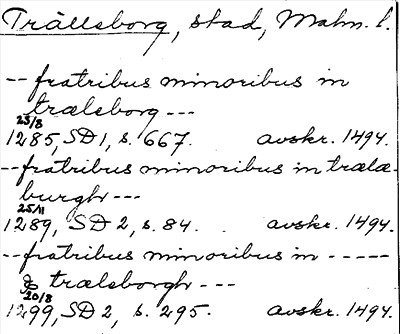 Trälleborg, stad, Malm. l.
-- fratribus minoribus in
trælsborg ---
25/8
1285, SD 1, s. 667. avskr. 1494.
-- fratribus minoribus in trælæ-
burgh ---
25/11
1289, SD 2, s. 84. avskr. 1494.
-- fratribus minoribus in -----
& trælsborgh ---
20/8
1299, SD 2, s. 295. avskr. 1494.